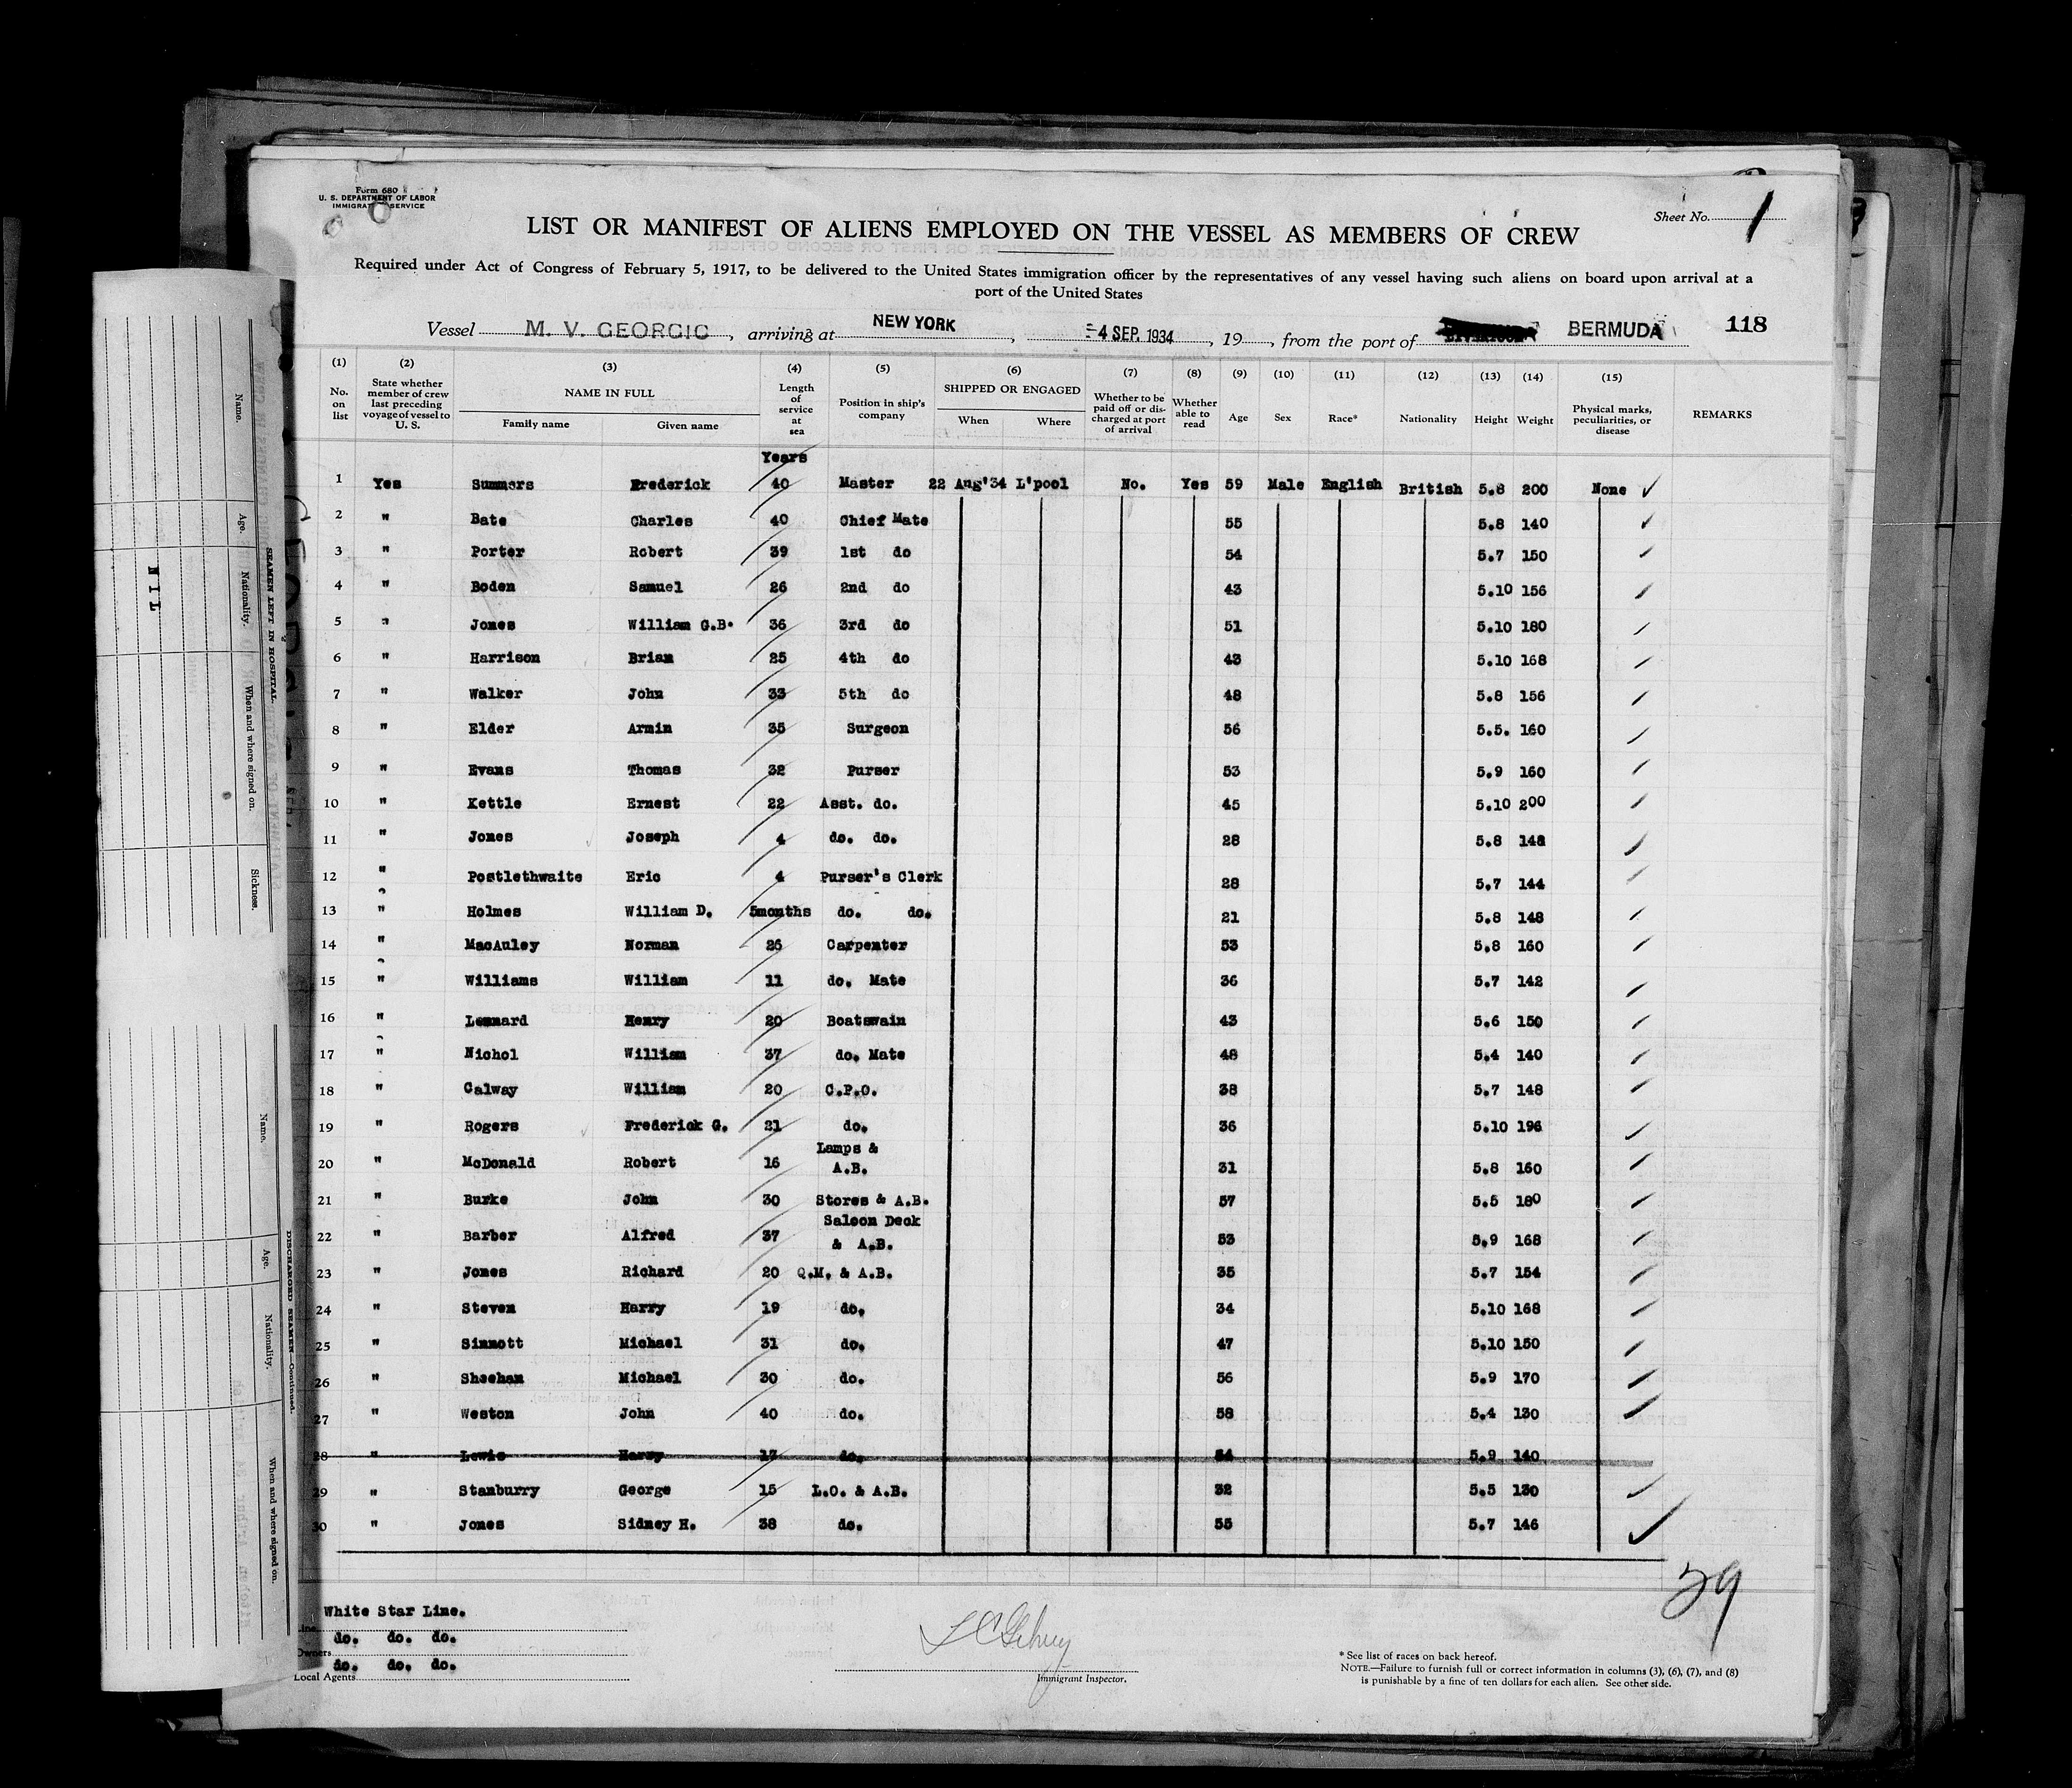 Form 680
U. S. DEPARTMENT OF LABOR
IMMIGRATION SERVICE
Sheet No. 1
LIST OR MANIFEST OF ALIENS EMPLOYED ON THE VESSEL AS MEMBERS OF CREW
Required under Act of Congress of February 5, 1917, to be delivered to the United States immigration officer by the representatives of any vessel having such aliens on board upon arrival at a
port of the United States
Vessel M. V. GEORGIC, arriving at NEW YORK, -4 SEP. 1934, 19, from the port of BERMUDA 118
(1) No. on list (2) State whether member of crew last preceding voyage of vessel to U. S. (3) NAME IN FULL Family name Given name (4) Length of service at sea (5) Position in ship's company (6) SHIPPED OR ENGAGED When Where (7) Whether to be paid off or discharged at port of arrival (8) Whether able to read (9) Age (10) Sex (11) Race* (12) Nationality (13) Height (14) Weight (15) Physical marks, peculiarities, or disease REMARKS
Years
1 Yes Summers Frederick 40 Master 22 Aug'34 L'pool No. Yes 59 Male English British 5.8 200 None ✓
2 " Bate Charles 40 Chief Mate 55 5.8 140
3 " Porter Robert 39 1st do 54 5.7 150
4 " Boden Samuel 26 2nd do 43 5.10 156
5 " Jones William G.B. 36 3rd do 51 5.10 180
6 " Harrison Brian 25 4th do 43 5.10 168
7 " Walker John 33 5th do 48 5.8 156
8 " Elder Armin 35 Surgeon 56 5.5. 160
9 " Evans Thomas 32 Purser 53 5.9 160
10 " Kettle Ernest 22 Asst. do. 45 5.10 200
11 " Jones Joseph 4 do. do. 28 5.8 148
12 " Postlethwaite Eric 4 Purser's Clerk 28 5.7 144
13 " Holmes William D. 5months do. do. 21 5.8 148
14 " MacAuley Norman 26 Carpenter 53 5.8 160
15 " Williams William 11 do. Mate 36 5.7 142
16 " Lennard Henry 20 Boatswain 43 5.6 150
17 " Nichol William 37 do. Mate 48 5.4 140
18 " Galway William 20 C.P.O. 38 5.7 148
19 " Rogers Frederick G. 21 do. 36 5.10 196
20 " McDonald Robert 16 Lamps & A.B. 31 5.8 160
21 " Burke John 30 Stores & A.B. 57 5.5 180
22 " Barber Alfred 37 Saloon Deck & A.B. 53 5.9 168
23 " Jones Richard 20 Q.M. & A.B. 35 5.7 154
24 " Steven Harry 19 do. 34 5.10 168
25 " Sinnott Michael 31 do. 47 5.10 150
26 " Sheehan Michael 30 do. 56 5.9 170
27 " Weston John 40 do. 58 5.4 130
28 " Lewis Harry 17 do. 34 5.9 140
29 " Stanburry George 15 L.O. & A.B. 32 5.5 130
30 " Jones Sidney H. 38 do. 55 5.7 146
29
White Star Line.
Line
do. do. do.
Owners
do. do. do.
Local Agents
Immigrant Inspector.
* See list of races on back hereof.
NOTE.—Failure to furnish full or correct information in columns (3), (6), (7), and (8)
is punishable by a fine of ten dollars for each alien. See other side.
SEAMEN LEFT IN HOSPITAL.
Name. Age. Nationality. When and where signed on. Sickness.
NIL
DISCHARGED SEAMEN—Continued.
Name. Age. Nationality. When and where signed on.